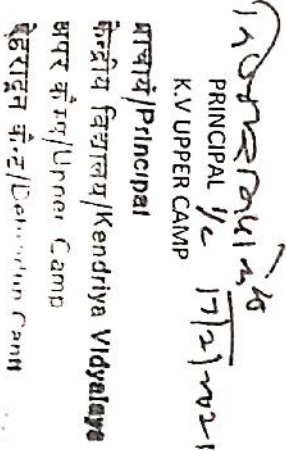 17/2/2021
PRINCIPAL I/c
K.V UPPER CAMP
प्राचार्य/Principal
केन्द्रीय विद्यालय/Kendriya Vidyalaya
अपर कैम्प/Upper Camp
देहरादून कैन्ट/Dehradun Cantt